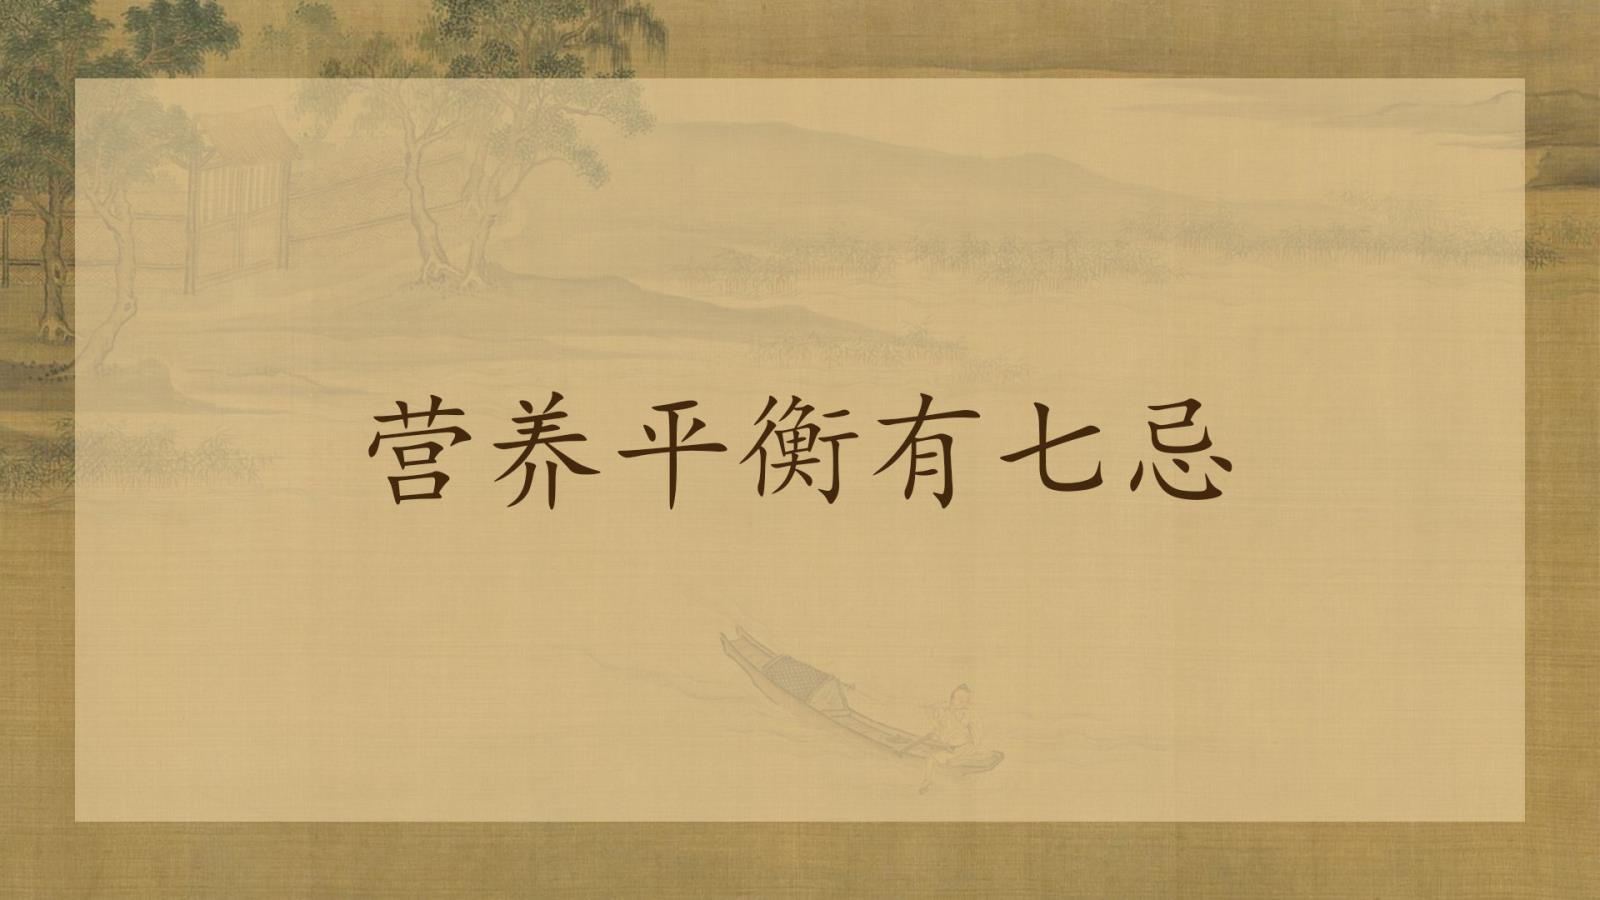 营养平衡有七忌